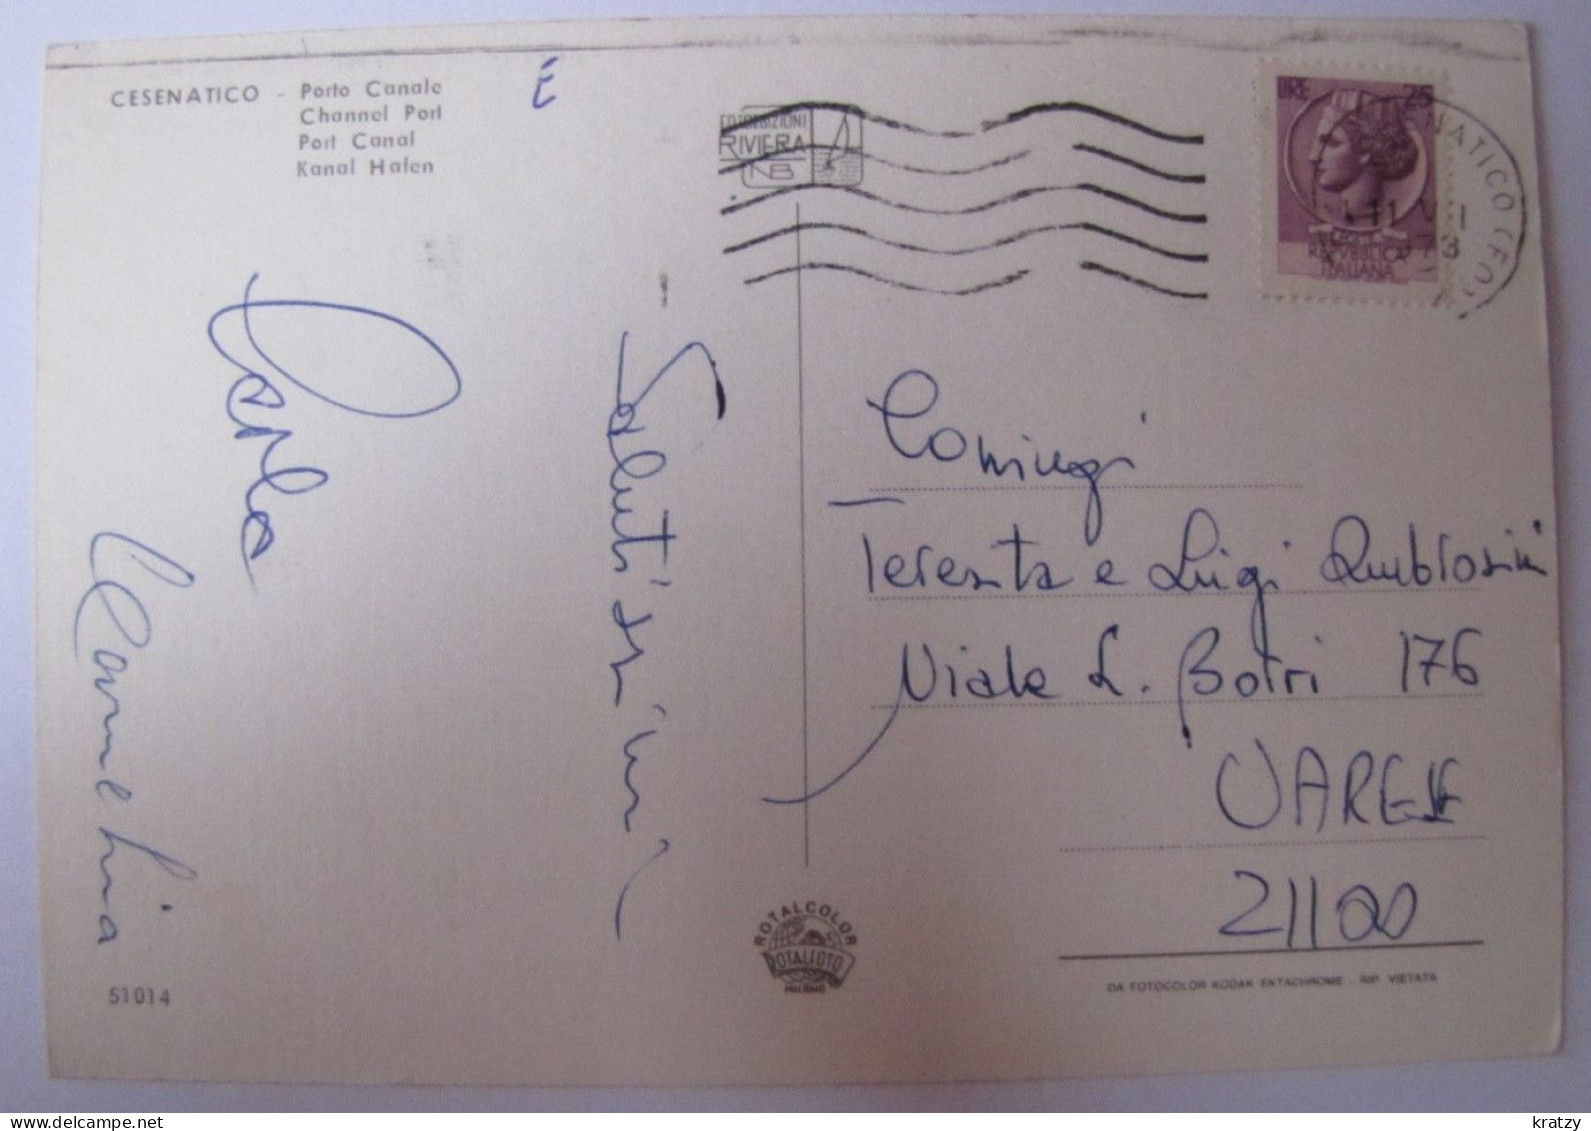 CESENATICO - Porto Canale
Channel Port
Port Canal
Kanal Hafen
È
FOTOEDIZIONI
RIVIERA
NB
LIRE 25
REPVBBLICA
ITALIANA
CESENATICO (FO)
11 VII
1973
Salutissimi
Carlo
Coniugi
Teresita e Luigi Ambrosini
Viale L. Borri 176
VARESE
21100
ROTALCOLOR
ROTALFOTO
MILANO
DA FOTOCOLOR KODAK EKTACHROME - RIP. VIETATA
51014